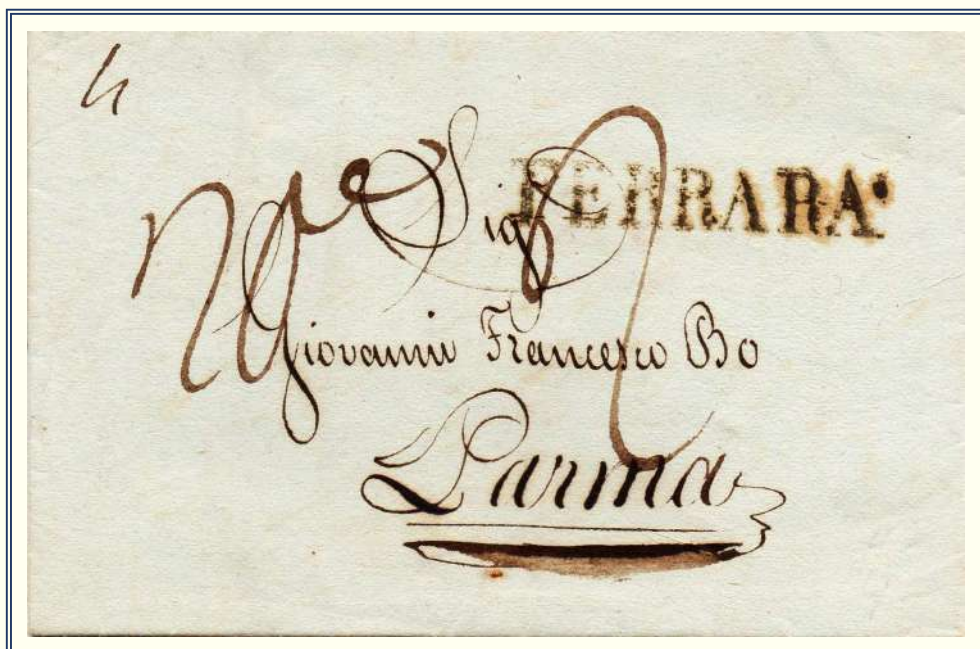 4
FERRARA
Sig
Giovanni Francesco Bo
Parma